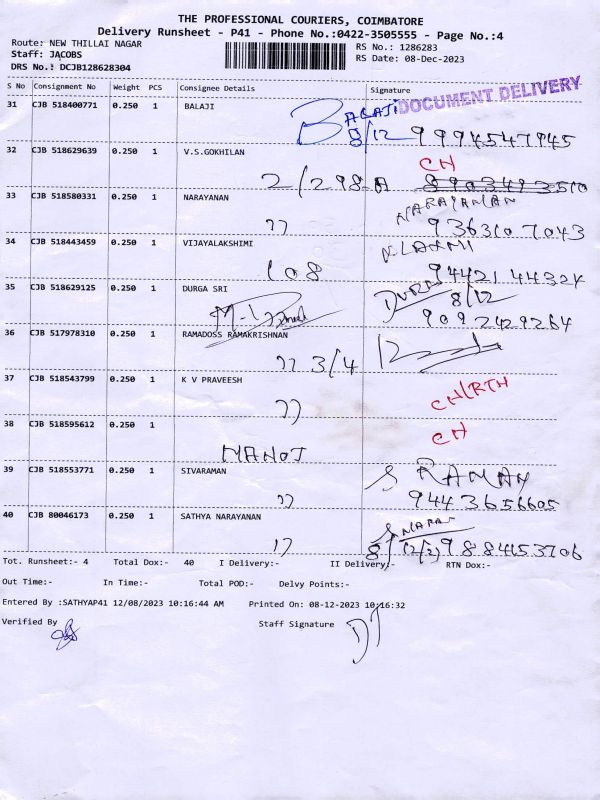 THE PROFESSIONAL COURIERS, COIMBATORE
Delivery Runsheet - P41 - Phone No.:0422-3505555 - Page No.:4
Route: NEW THILLAI NAGAR
RS No.: 1286283
Staff: JACOBS
RS Date: 08-Dec-2023
DRS No.: DCJB128628304
S No Consignment No Weight PCS Consignee Details Signature
DOCUMENT DELIVERY
31 CJB 518400771 0.250 1 BALAJI BALAJI
8/12 9994547945
32 CJB 518629639 0.250 1 V.S.GOKHILAN CH
2/298A 8903493510
33 CJB 518580331 0.250 1 NARAYANAN NARAYANAN
77 9363107043
34 CJB 518443459 0.250 1 VIJAYALAKSHIMI V.LAXMI
108 94421 44324
35 CJB 518629125 0.250 1 DURGA SRI DURGA
8/12
9092429264
36 CJB 517978310 0.250 1 RAMADOSS RAMAKRISHNAN
77 3/4
37 CJB 518543799 0.250 1 K V PRAVEESH CH/RTN
77
38 CJB 518595612 0.250 1 CH
MANOJ
39 CJB 518553771 0.250 1 SIVARAMAN S RAMAN
77 9443656605
40 CJB 80046173 0.250 1 SATHYA NARAYANAN S NARAN
17 8/12/23 9884653706
Tot. Runsheet:- 4 Total Dox:- 40 I Delivery:- II Delivery:- RTN Dox:-
Out Time:- In Time:- Total POD:- Delvy Points:-
Entered By :SATHYAP41 12/08/2023 10:16:44 AM Printed On: 08-12-2023 10:16:32
Verified By Staff Signature